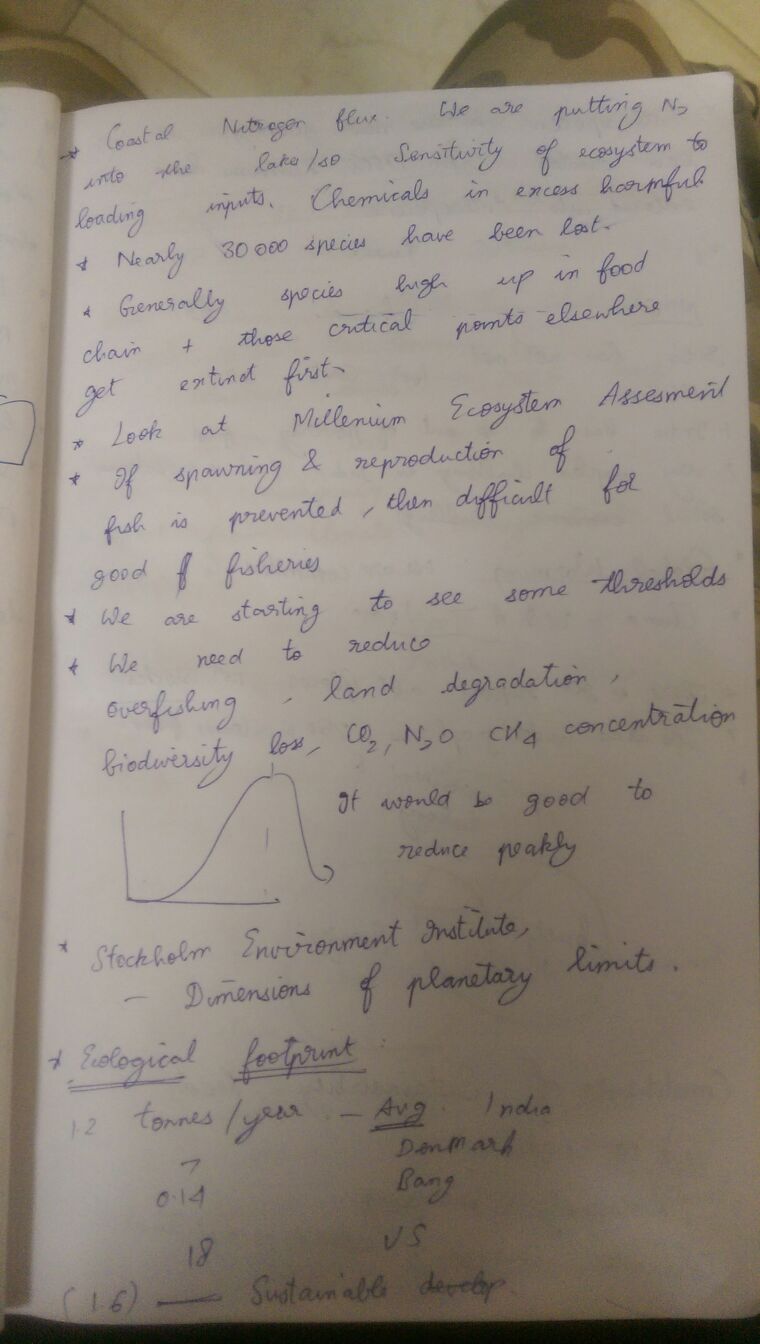 * Coastal Nitrogen flux. We are putting N2
into the lake/so Sensitivity of ecosystem to
loading inputs. Chemicals in excess harmful.
* Nearly 30000 species have been lost.
* Generally species high up in food
chain + those critical points elsewhere
get extinct first
* Look at Millenium Ecosystem Assesment
* If spawning & reproduction of
fish is prevented, then difficult for
good fisheries
* We are starting to see some thresholds
* We need to reduce
overfishing, land degradation,
biodiversity loss, CO2, N2O CH4 concentration
It would be good to
reduce peakly
* Stockholm Environment Institute,
— Dimensions of planetary limits.
* Ecological footprint
1.2 tonnes/year — Avg. India
7 Denmark
0.14 Bang
18 US
(1.6) — Sustainable develop.